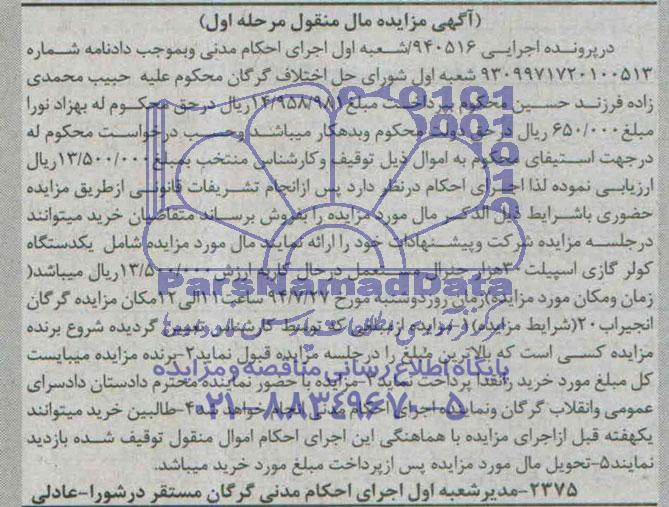 (آگهی مزایده مال منقول مرحله اول)
درپرونده اجرایی ۹۴۰۵۱۶/شعبه اول اجرای احکام مدنی وبموجب دادنامه شماره
۹۳۰۹۹۷۱۷۲۰۱۰۰۵۱۳ شعبه اول شورای حل اختلاف گرگان محکوم علیه حبیب محمدی
زاده فرزند حسین محکوم بپرداخت مبلغ ۱۴/۹۵۸/۹۸۱ریال درحق محکوم له بهزاد نورا
مبلغ ۶۵۰/۰۰۰ ریال درحق دولت محکوم وبدهکار میباشد وحسب درخواست محکوم له
درجهت استیفای محکوم به اموال ذیل توقیف وکارشناس منتخب بمبلغ ۱۳/۵۰۰/۰۰۰ریال
ارزیابی نموده لذا اجرای احکام درنظر دارد پس ازانجام تشریفات قانونی ازطریق مزایده
حضوری باشرایط ذیل الذکر مال مورد مزایده را بفروش برساند متقاضیان خرید میتوانند
درجلسه مزایده شرکت وپیشنهادات خود را ارائه نمایند مال مورد مزایده شامل یکدستگاه
کولر گازی اسپیلت ۳۰هزار جنرال مستعمل درحال کاربه ارزش ۱۳/۵۰۰/۰۰۰ریال میباشد(
زمان ومکان مورد مزایده)زمان روزدوشنبه مورخ ۹۴/۷/۲۷ ساعت ۱۱الی۱۲مکان مزایده گرگان
انجیراب۲۰(شرایط مزایده)۱-مزایده ازمبلغی که توسط کارشناس تعیین گردیده شروع برنده
مزایده کسی است که بالاترین مبلغ را درجلسه مزایده قبول نماید۲-برنده مزایده میبایست
کل مبلغ مورد خرید رانقدا پرداخت نماید۳-مزایده با حضور نماینده محترم دادستان دادسرای
عمومی وانقلاب گرگان ونماینده اجرای احکام مدنی انجام خواهد شد۴-طالبین خرید میتوانند
یکهفته قبل ازاجرای مزایده با هماهنگی این اجرای احکام اموال منقول توقیف شده بازدید
نمایند۵-تحویل مال مورد مزایده پس ازپرداخت مبلغ مورد خرید میباشد.
۲۳۷۵-مدیرشعبه اول اجرای احکام مدنی گرگان مستقر درشورا-عادلی
ParsNamadData
پایگاه اطلاع رسانی مناقصه و مزایده
۰۲۱-۸۸۳۴۹۶۷۰-۵